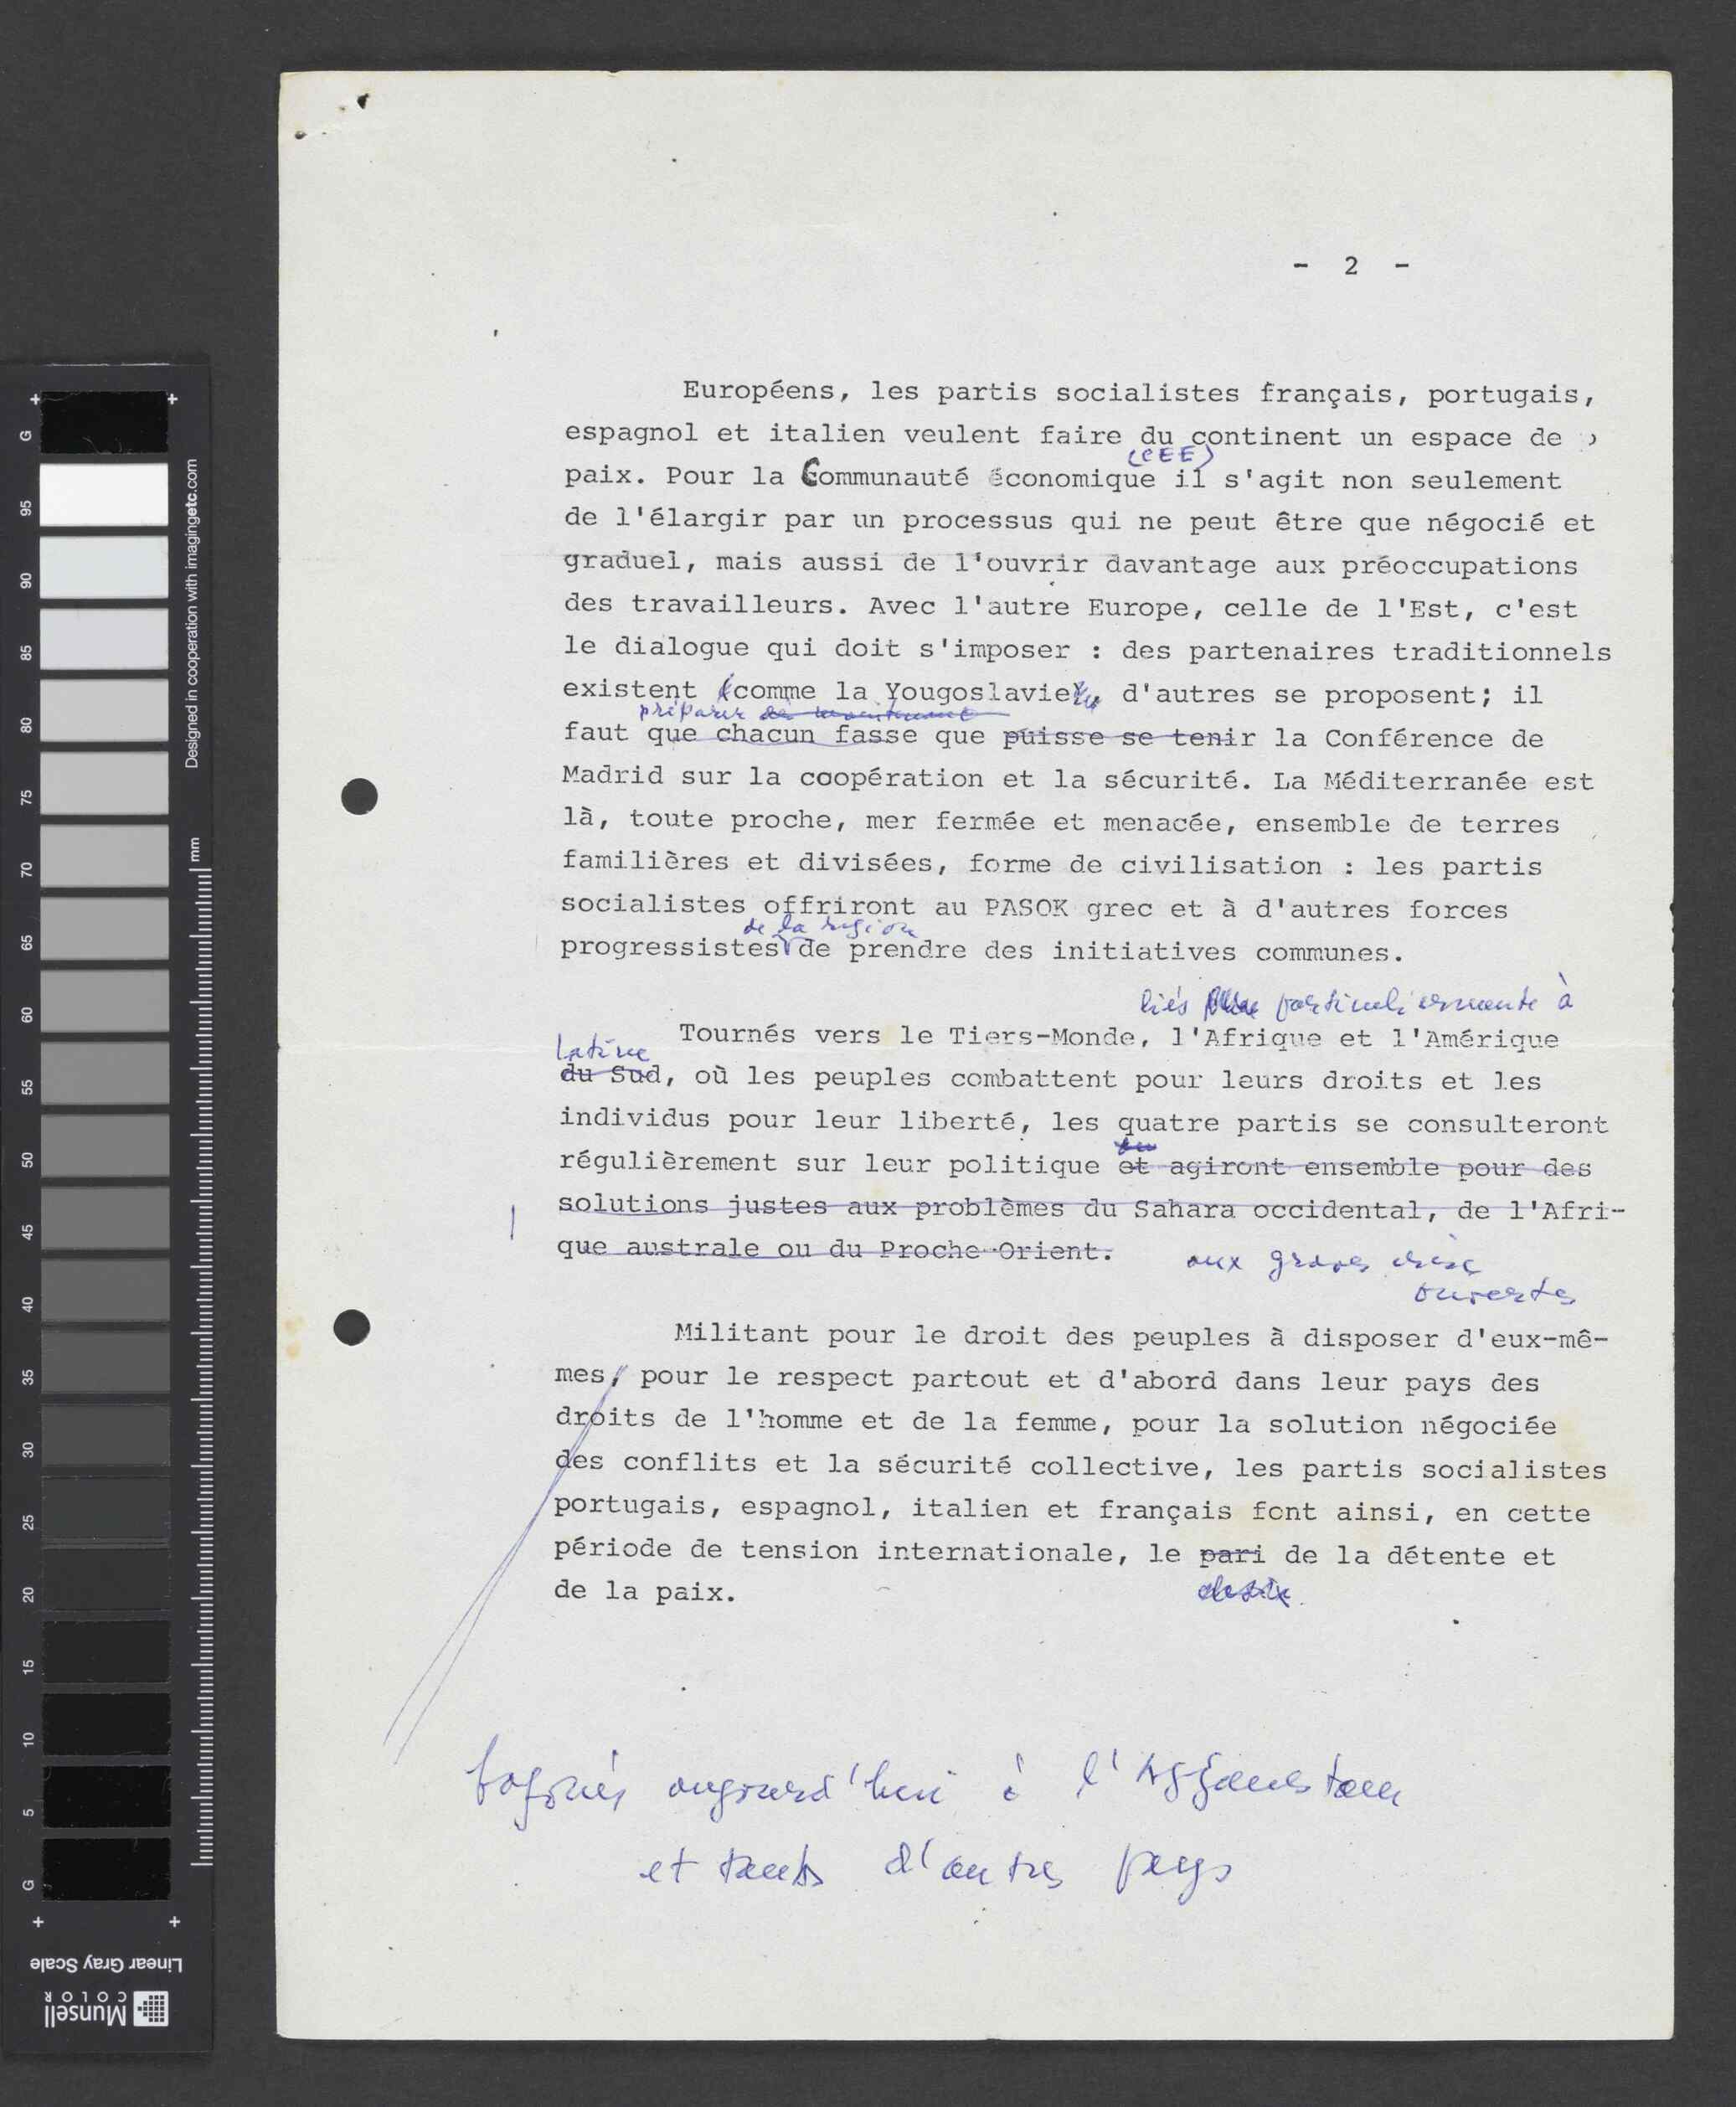 - 2 -
Européens, les partis socialistes français, portugais,
espagnol et italien veulent faire du continent un espace de
(CEE)
paix. Pour la Communauté économique il s'agit non seulement
de l'élargir par un processus qui ne peut être que négocié et
graduel, mais aussi de l'ouvrir davantage aux préoccupations
des travailleurs. Avec l'autre Europe, celle de l'Est, c'est
le dialogue qui doit s'imposer : des partenaires traditionnels
existent (comme la Yougoslavie), d'autres se proposent; il
préparer
faut que chacun fasse que puisse se tenir la Conférence de
Madrid sur la coopération et la sécurité. La Méditerranée est
là, toute proche, mer fermée et menacée, ensemble de terres
familières et divisées, forme de civilisation : les partis
socialistes offriront au PASOK grec et à d'autres forces
de la region
progressistes de prendre des initiatives communes.
liés particulièrement à
Tournés vers le Tiers-Monde, l'Afrique et l'Amérique
Latine
du Sud, où les peuples combattent pour leurs droits et les
individus pour leur liberté, les quatre partis se consulteront
régulièrement sur leur politique et agiront ensemble pour des
solutions justes aux problèmes du Sahara occidental, de l'Afri-
que australe ou du Proche-Orient.
aux graves crises
ouvertes
Militant pour le droit des peuples à disposer d'eux-mê-
mes, pour le respect partout et d'abord dans leur pays des
droits de l'homme et de la femme, pour la solution négociée
des conflits et la sécurité collective, les partis socialistes
portugais, espagnol, italien et français font ainsi, en cette
période de tension internationale, le pari de la détente et
de la paix.
bafoués aujourd'hui à l'Afganistan
et tants d'autres pays
Designed in cooperation with imagingetc.com
mm
G
95
90
85
80
75
70
65
60
55
50
45
40
35
30
25
20
15
10
5
G
Linear Gray Scale
Munsell
COLOR